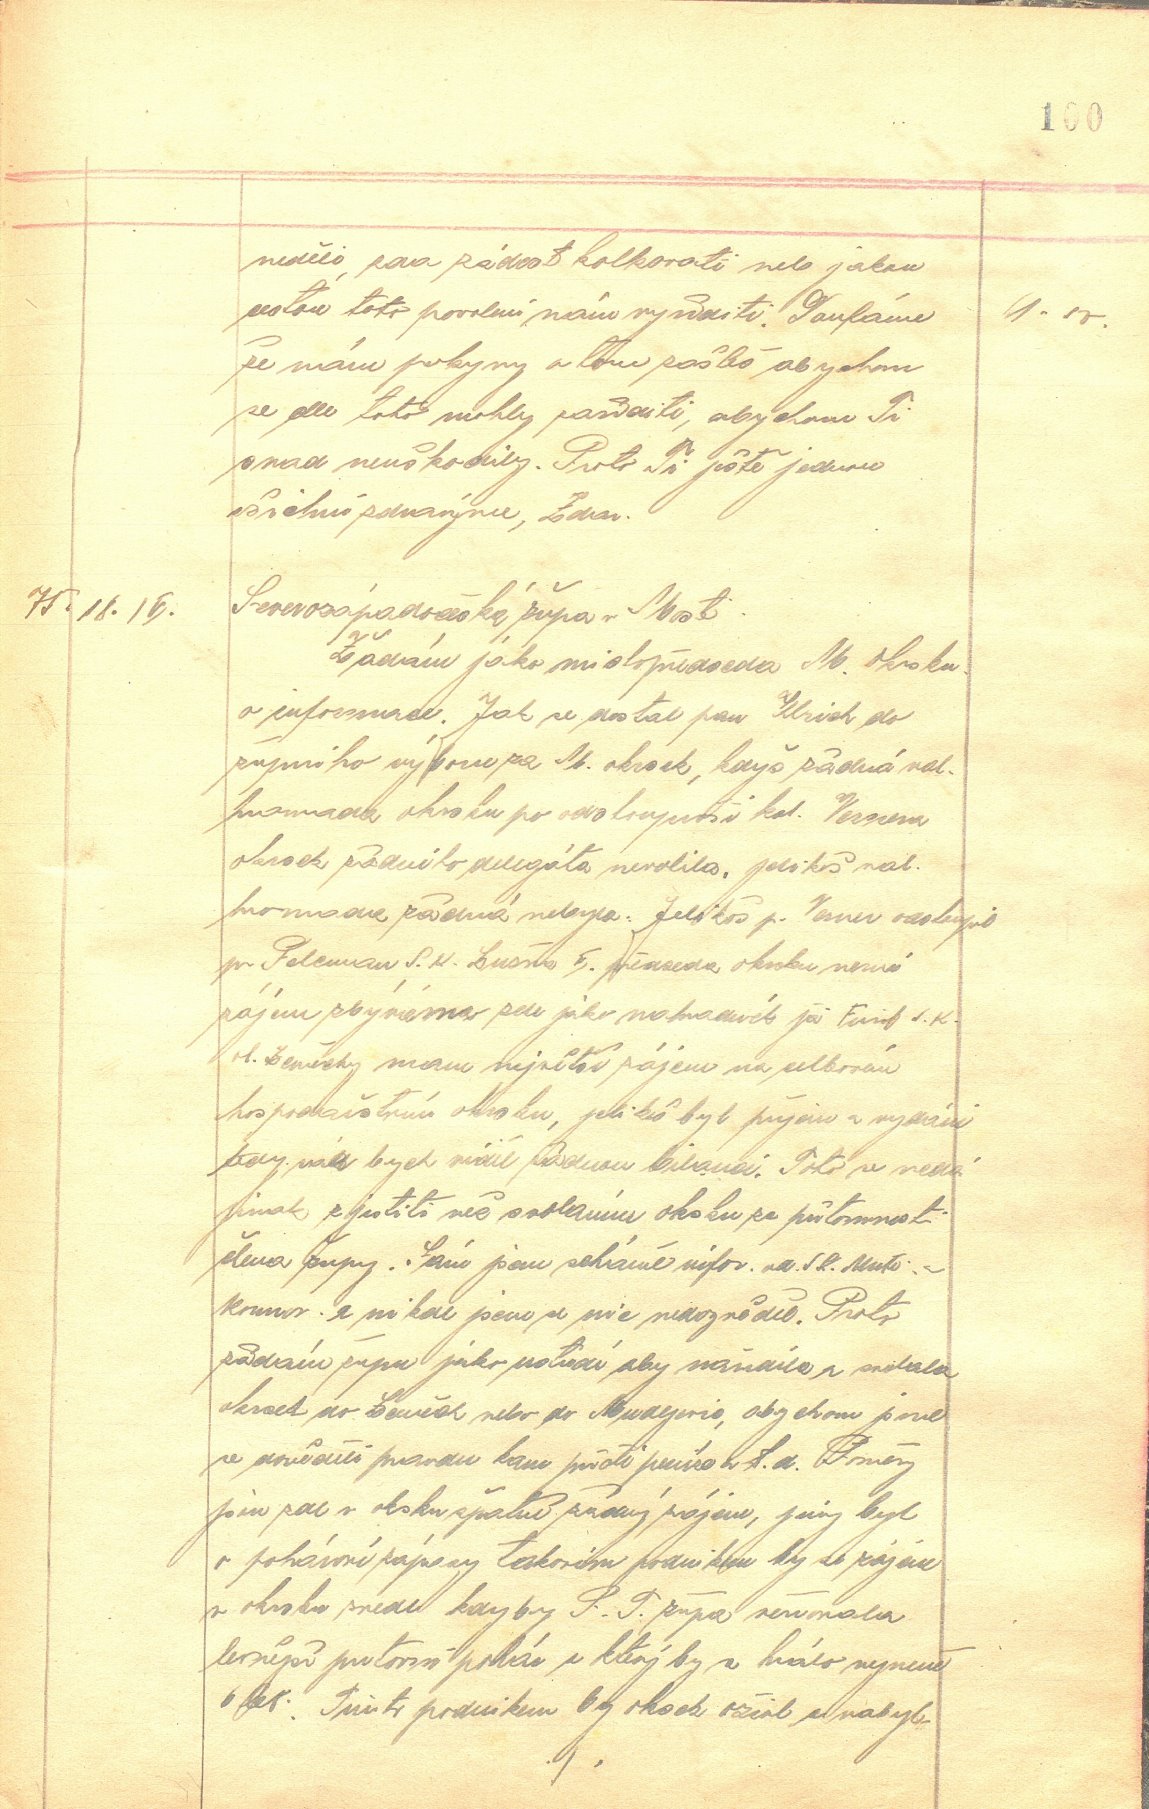 100
neděli, zda žádost kolkovati nebo jakou
cestou toto povolení nám vyříditi. Doufáme
že nám pokyny o tom zašleš abychom
se dle toto mohly zaříditi, abychom Ti
snad neuškodily. Proto Ti ještě jednou
všichni, Zdar.
75. 18. IV.
Severozápadočeská župa v Mostě.
Žádám jako místopředseda M. okrsku
o informace. Jak se dostal pan Ulrich do
župního výboru za M. okrsek, když žádná val.
hromada okrsku po odstoupení kol. Vernera
okrsek žádného delegáta nevolila, jelikož val.
hromada žádná nebyla. Jelikož p. Verner odstoupil
p. Pelcman S. K. předseda okrsku nemá
zájem zbývá zde jako náhradník já S. K.
mám největší zájem na celkovém
hospodářství okrsku, jelikož byl příjem a vydání
tedy rád bych viděl řádnou bilanci. Toto se nedá
jinak zjistiti než svoláním okrsku za přítomnosti
člena župy. Sám jsem sháněl infor.
a nikde jsem se nic nedozvěděl. Proto
žádám župu jako ústředí aby nařídila a svolala
okrsek do nebo do, abychom jsme
se dověděli pravdu kam přišli peníze a t.d. Poměry
jsou zde v okrsku špatné žádný zájem, jený byl
o pohárové zápasy takovým podnikem by se zájem
v okrsku zvedl kdyby S. T. župa věnovala
levnější putovní pohár o který by se hrálo nejméně
Tímto podnikem by okrsek ožil a nabyl
./.